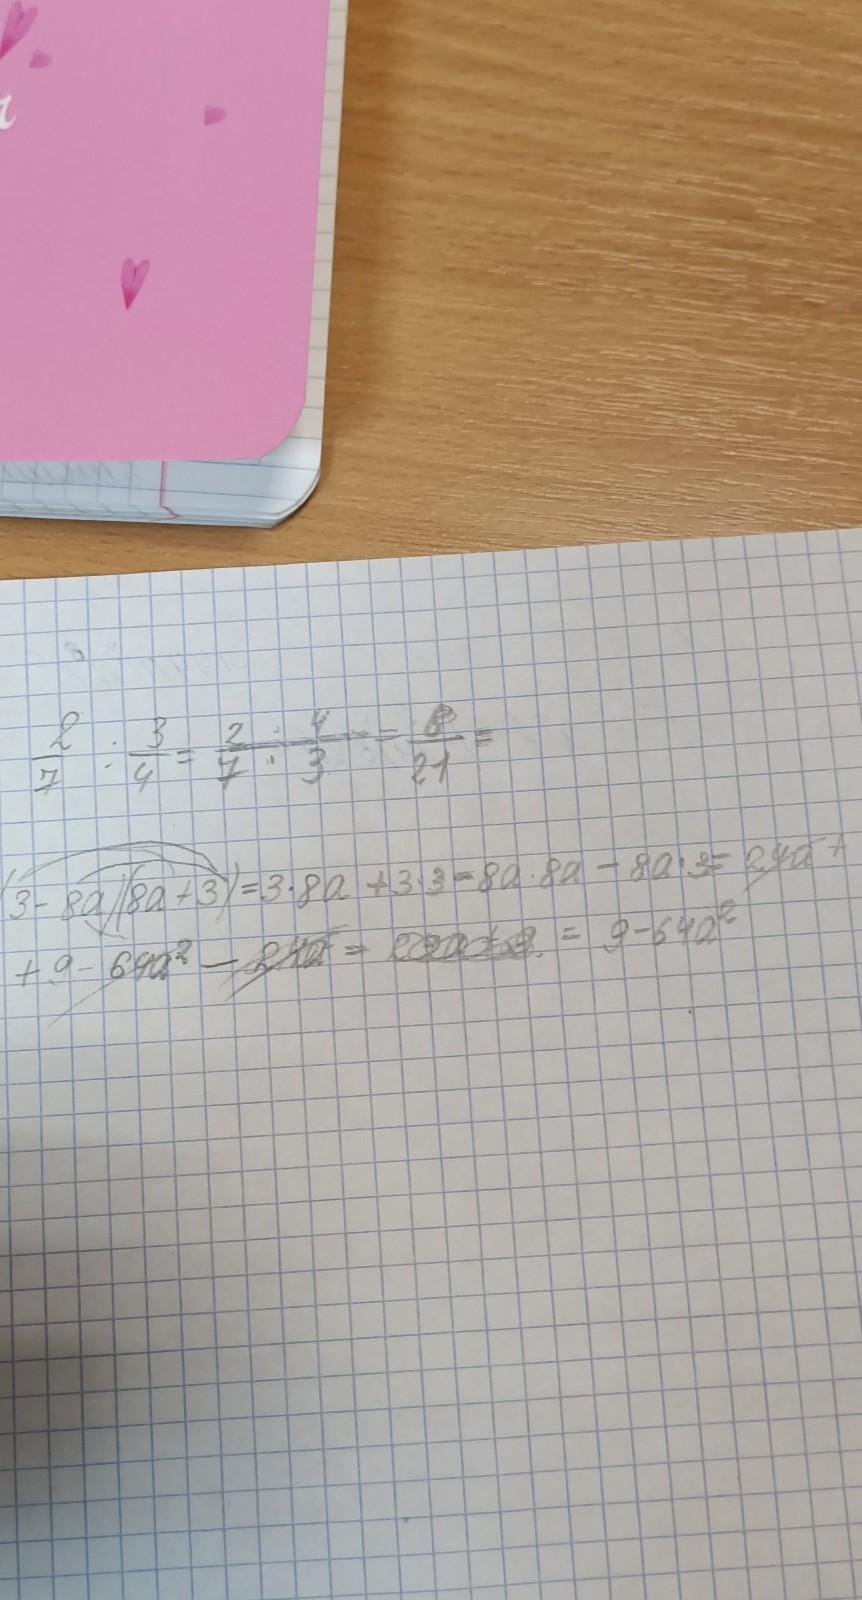 2/7 : 3/4 = 2/7 : 4/3 = 8/21 =
(3 - 8a)(8a + 3) = 3·8a + 3·3 - 8a·8a - 8a·3 = 24a +
+ 9 - 64a² - 24a = = 9 - 64a²